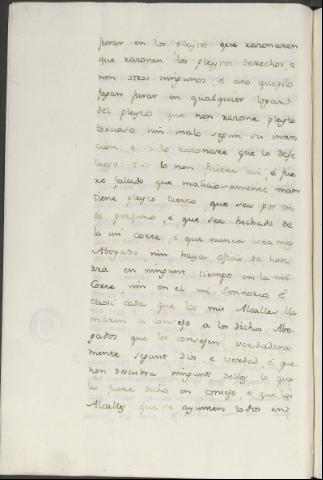 jurar en los pleytos que razonaren
que razonen los pleytos derechos, e
non otros ningunos, e esso que gelo
fagan jurar en qualquier logar
del pleyto que non razone pleyto
tortizero nin malo segun su inten
cion, e si lo razonare que lo dexe
luego: e si lo non fiziere assi, e fue
re fallado que maliciosamente man
tiene pleyto tuerto, que sea por en
de perjuro, e que sea hechado de
la mi Corte, e que nunca sea mas
Abogado, nin haya oficio de hon
rra en ningunt tiempo en la mi
Corte nin en el mi Sennorio. E
otrosi cada que los mis Alcalles lla
maren a consejo a los dichos Abo
gados que los consejen verdadera
mente segunt Dios e verdad e que
non descubra ningunt dellos lo que
les fuere dicho en consejo, e que los
Alcalles que se ayunten todos en